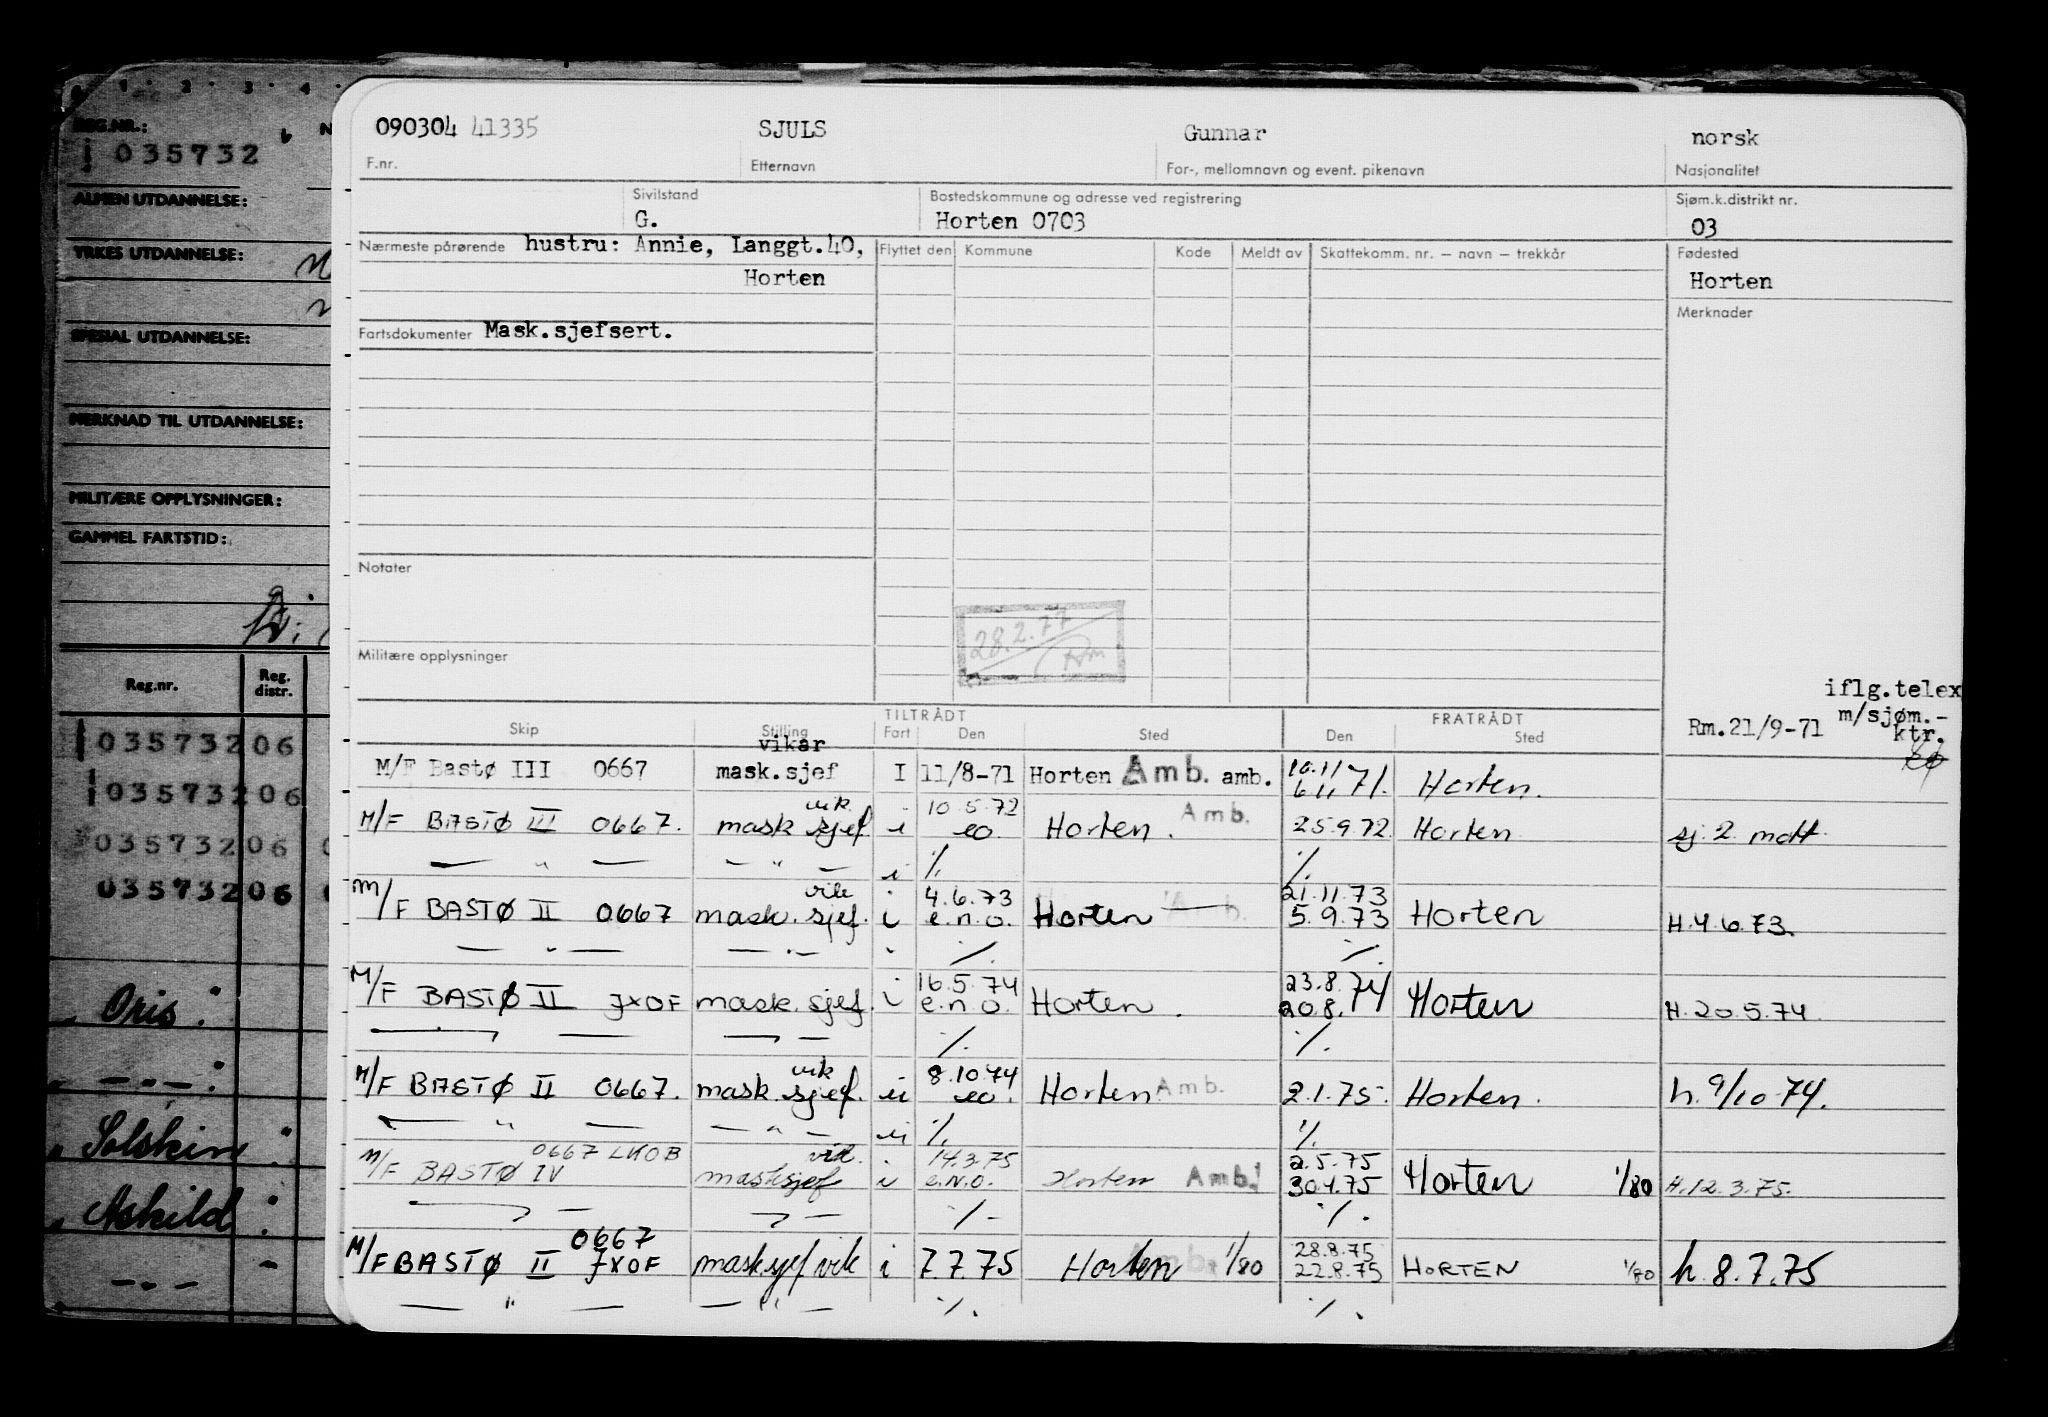 REG.NR.:
035732
ALMEN UTDANNELSE:
YRKES UTDANNELSE:
SPESIAL UTDANNELSE:
MERKNAD TIL UTDANNELSE:
MILITÆRE OPPLYSNINGER:
GAMMEL FARTSTID:
Reg.nr. Reg. distr.
035732 06
035732 06
035732 06
035732 06
" Oris :
" — " — :
" Solskin "
" Askild :
090304 41335 SJULS Gunnar norsk
F.nr. Etternavn For-, mellomnavn og event. pikenavn Nasjonalitet
Sivilstand Bostedskommune og adresse ved registrering Sjøm.k.distrikt nr.
G. Horten 0703 03
Nærmeste pårørende hustru: Annie, Langgt.40, Flyttet den Kommune Kode Meldt av Skattekomm. nr. – navn – trekkår Fødested
Horten Horten
Merknader
Fartsdokumenter Mask.sjefsert.
Notater
28.2.77
Militære opplysninger
iflg.telex
Rm.21/9-71 m/sjøm.-
ktr.
TILTRÅDT FRATRÅDT
Skip Stilling Fart Den Sted Den Sted
vikar
M/F Bastø III 0667 mask.sjef I 11/8-71 Horten Amb. amb. 10.11 6.11 71. Horten.
vik. 10.5.72 Amb.
M/F BASTØ III 0667. mask sjef. i eo. Horten. 25.9.72 Horten sj. 2 mdt.
— " — — " — i %. %.
vik 4.6.73 21.11.73
M/F BASTØ II 0667 mask. sjef. i e.n.o. Horten Amb. 5.9.73 Horten H.4.6.73.
— " — — " — " %. %.
16.5.74 23.8.74
M/F BASTØ II JXOF mask. sjef. i e.n.o. Horten. 20.8. Horten H.20.5.74.
— " — — " — %. %.
vik 8.10.74
M/F BASTØ II 0667. mask. sjef. ii eo. Horten Amb. 2.1.75. Horten. h. 9/10-74.
— " — — " — ii %. %.
0667 LKOB vik. 14.3.75 2.5.75
M/F BASTØ IV mask sjef i e.n.o. Horten Amb. 30.4.75 Horten 1/80 H.12.3.75.
— " — — " — %. %.
0667 28.8.75
M/F BASTØ II JXOF mask.sjef vik i 7.7.75 Horten Amb. 1/80 22.8.75 HORTEN 1/80 h.8.7.75
— " — — " — %. %.